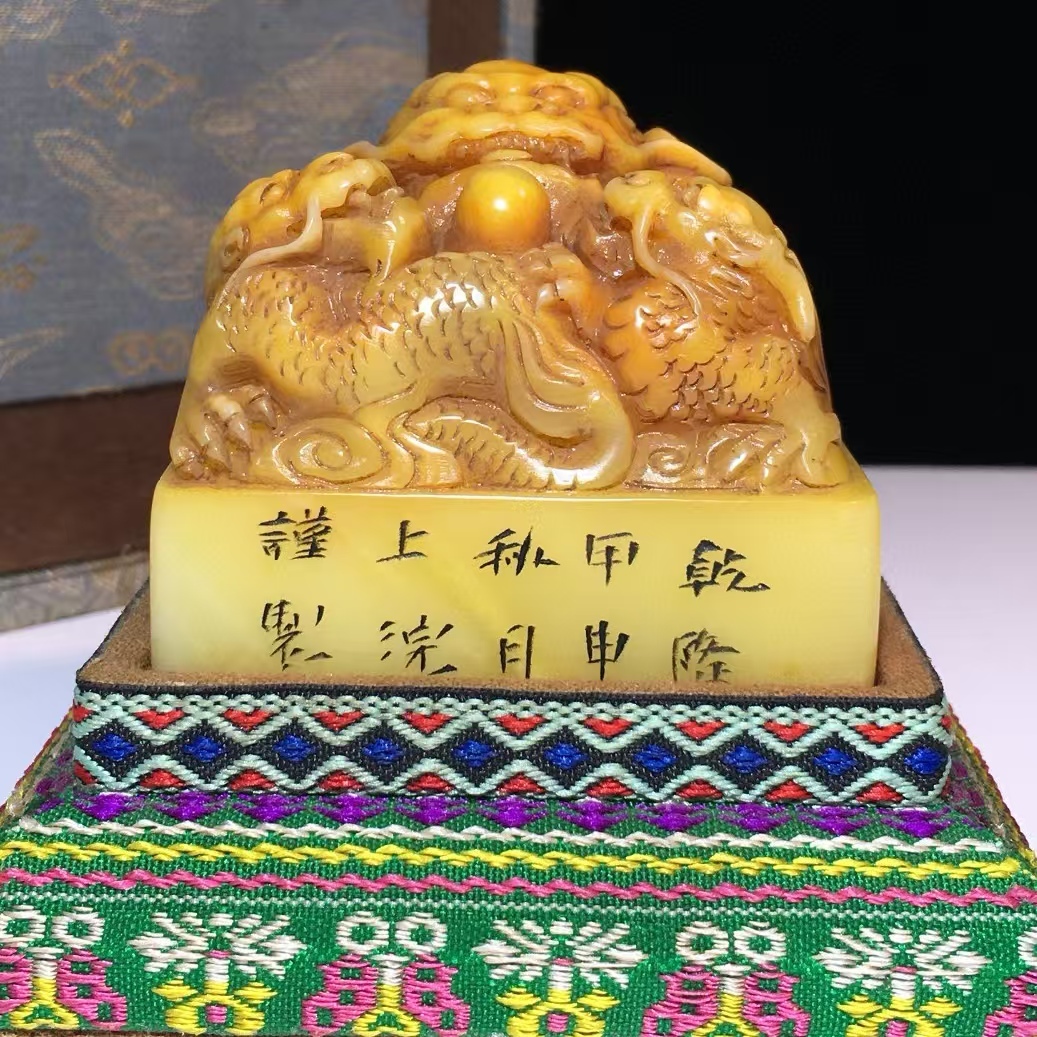 乾隆
甲申
秋月
上浣
謹製